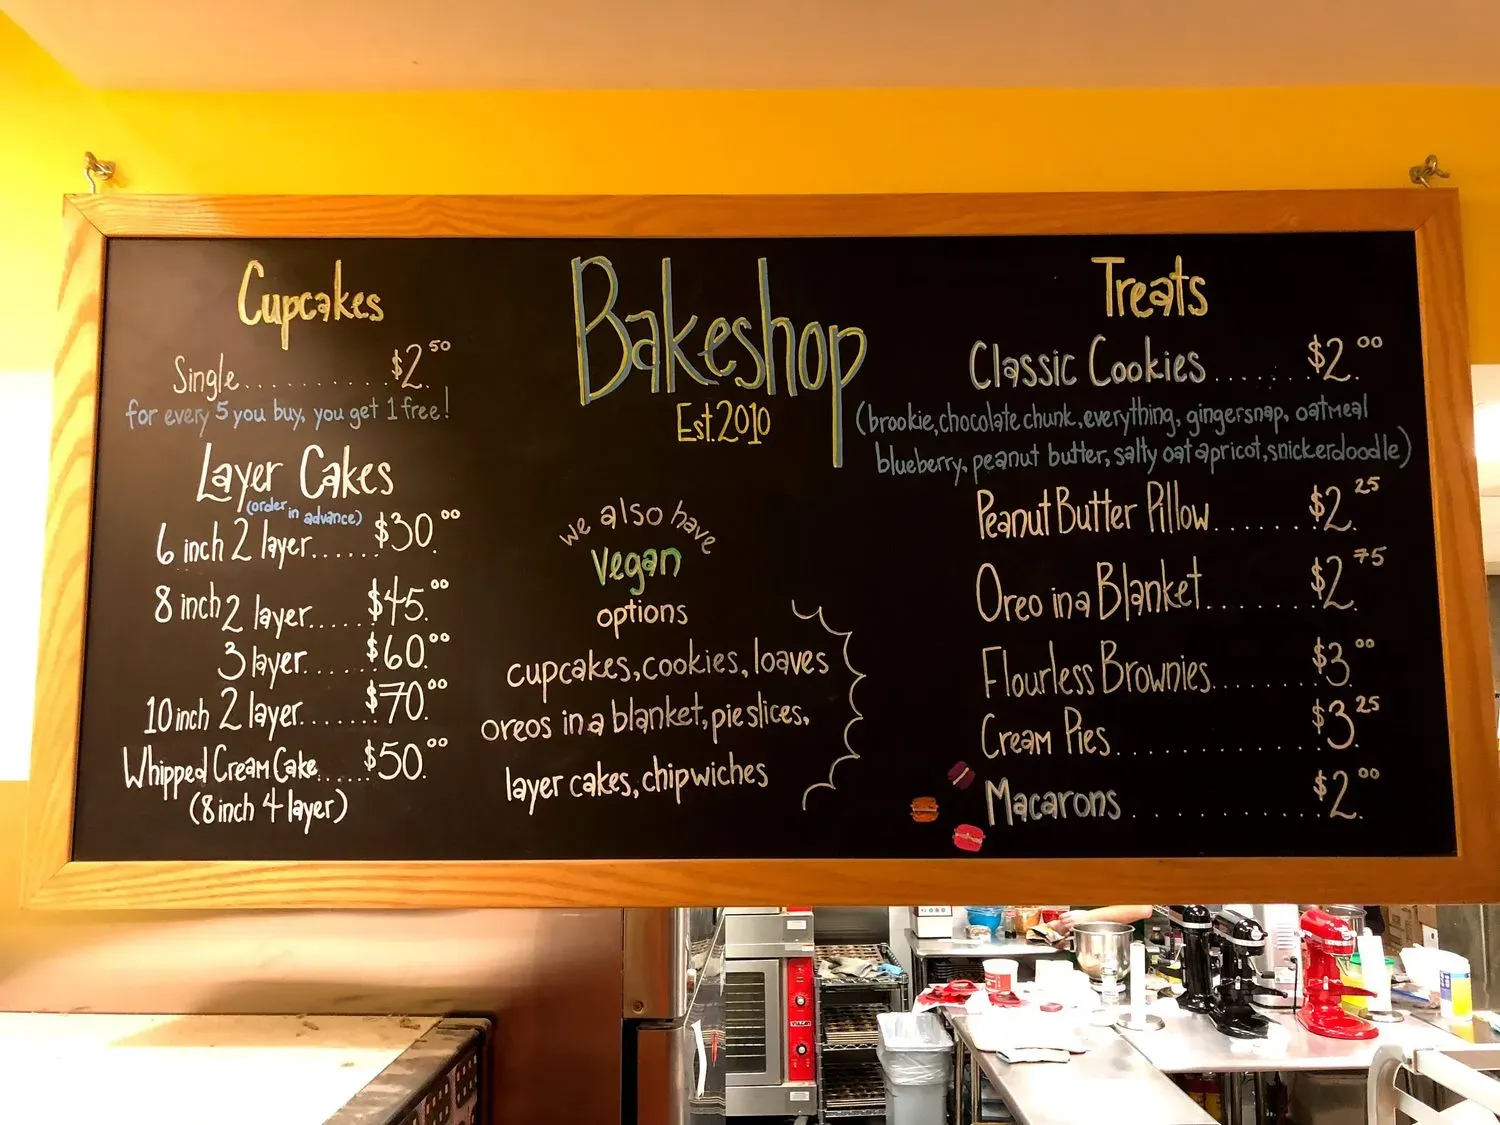 Cupcakes
Single.......... $2.50
for every 5 you buy, you get 1 free!
Layer Cakes
(order in advance)
6 inch 2 layer...... $30.00
8 inch 2 layer..... $45.00
3 layer..... $60.00
10 inch 2 layer...... $70.00
Whipped Cream Cake..... $50.00
(8 inch 4 layer)
Bakeshop
Est. 2010
we also have
vegan
options
cupcakes, cookies, loaves
oreos in a blanket, pie slices,
layer cakes, chipwiches
Treats
Classic Cookies...... $2.00
(brookie, chocolate chunk, everything, gingersnap, oatmeal
blueberry, peanut butter, salty oat apricot, snickerdoodle)
Peanut Butter Pillow...... $2.25
Oreo in a Blanket....... $2.75
Flourless Brownies....... $3.00
Cream Pies............. $3.25
Macarons............. $2.00